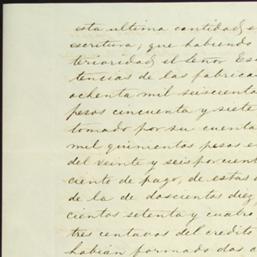 esta ultima cantidad, e
escritura; que habiendo
terioridad el señor Es
tencias de las fabrica
ochenta mil seiscient
pesos cincuenta y siete
tomado por su cuenta
mil quinientos pesos e
del veinte y seis por cient
ciento de pago, de estas c
de la de doscientos diez
cientos setenta y cuatro
tres centavos del credito
habian formado dos c